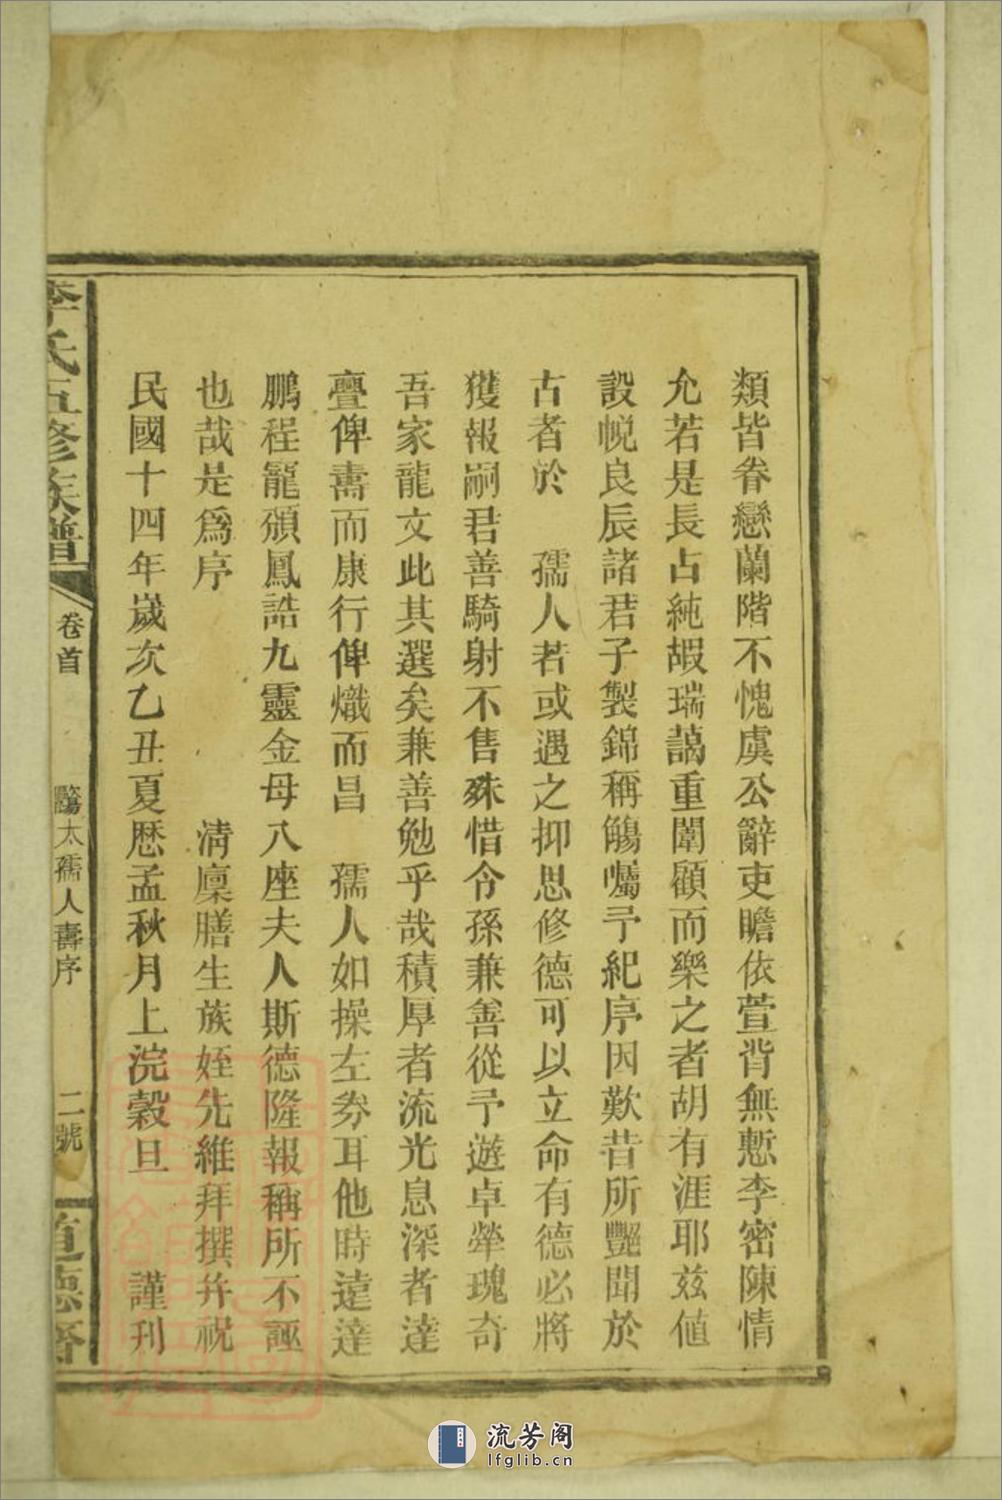 類皆眷戀蘭階不愧虞公辭吏瞻依萱背無慙李密陳情
允若是長占純嘏瑞藹重闈顧而樂之者胡有涯耶玆値
設帨良辰諸君子製錦稱觴囑予紀序因歎昔所艷聞於
古者於　孺人若或遇之抑思修德可以立命有德必將
獲報嗣君善騎射不售殊惜令孫兼善從予遊卓犖瑰奇
吾家龍文此其選矣兼善勉乎哉積厚者流光息深者達
亹俾壽而康行俾熾而昌　孺人如操左劵耳他時遠達
鵬程寵頒鳳誥九靈金母八座夫人斯德隆報稱所不誣
也哉是爲序　清廩膳生族姪先維拜撰幷祝
民國十四年歲次乙丑夏厯孟秋月上浣穀旦　謹刊
李氏五修族譜　卷首　太孺人壽序　二號　道德齋
流芳阁
lfglib.cn